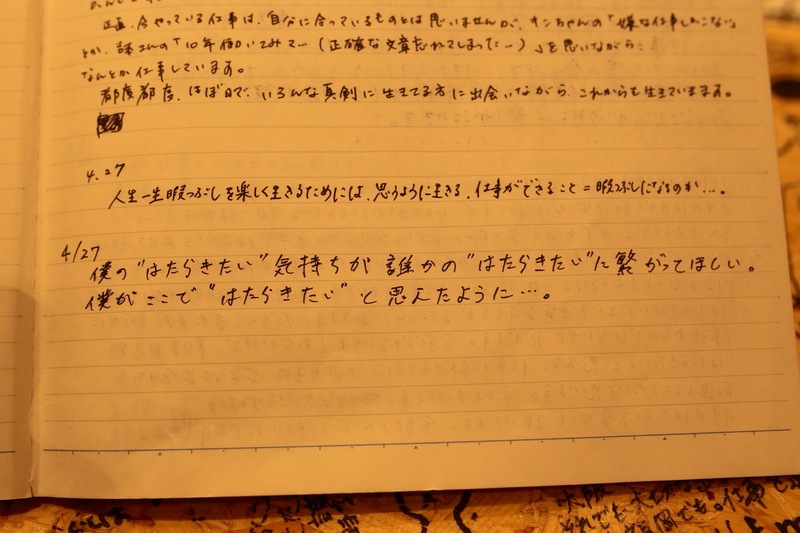 正直、今やっている仕事は、自分に合っているものとは思いませんが、オンちゃんの「嫌な仕事しかこない」
とか、諒さんの「10年働いてみて…(正確な文章忘れてしまった…)」を思いながら、
なんとか仕事しています。
都度都度、ほぼ日で、いろんな真剣に生きてる方に出会いながら、これからも生きていきます。
4.27
人生一生暇つぶしを楽しく生きるためには、思うように生きる。仕事ができること=暇つぶしになるのか…。
4/27
僕の"はたらきたい"気持ちが誰かの"はたらきたい"に繋がってほしい。
僕がここで"はたらきたい"と思えたように…。
大阪